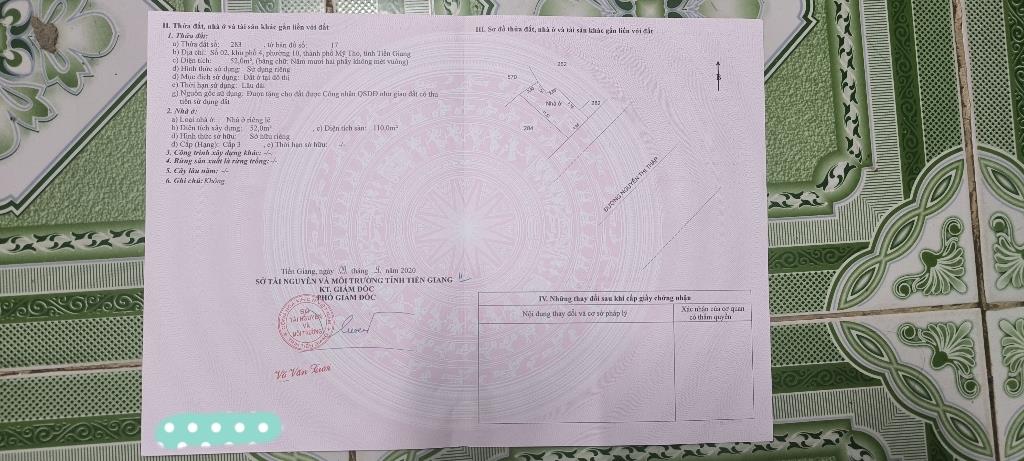 II. Thửa đất, nhà ở và tài sản khác gắn liền với đất
1. Thửa đất:
a) Thửa đất số: 283 , tờ bản đồ số: 17
b) Địa chỉ: Số 02, khu phố 4, phường 10, thành phố Mỹ Tho, tỉnh Tiền Giang
c) Diện tích: 52,0m², (bằng chữ: Năm mươi hai phẩy không mét vuông)
d) Hình thức sử dụng: Sử dụng riêng
đ) Mục đích sử dụng: Đất ở tại đô thị
e) Thời hạn sử dụng: Lâu dài
g) Nguồn gốc sử dụng: Được tặng cho đất được Công nhận QSDĐ như giao đất có thu
tiền sử dụng đất
2. Nhà ở:
a) Loại nhà ở: Nhà ở riêng lẻ
b) Diện tích xây dựng: 52,0m² , c) Diện tích sàn: 110,0m²
d) Hình thức sở hữu: Sở hữu riêng
đ) Cấp (Hạng): Cấp 3 , e) Thời hạn sở hữu: -/-
3. Công trình xây dựng khác: -/-
4. Rừng sản xuất là rừng trồng: -/-
5. Cây lâu năm: -/-
6. Ghi chú: Không
Tiền Giang, ngày tháng năm 2020
SỞ TÀI NGUYÊN VÀ MÔI TRƯỜNG TỈNH TIỀN GIANG
KT. GIÁM ĐỐC
PHÓ GIÁM ĐỐC
SỞ
TÀI NGUYÊN
VÀ
MÔI TRƯỜNG
Võ Văn
III. Sơ đồ thửa đất, nhà ở và tài sản khác gắn liền với đất
252
570
B
Nhà ở
282
284
ĐƯỜNG NGUYỄN THỊ THẬP
IV. Những thay đổi sau khi cấp giấy chứng nhận
Nội dung thay đổi và cơ sở pháp lý
Xác nhận của cơ quan
có thẩm quyền